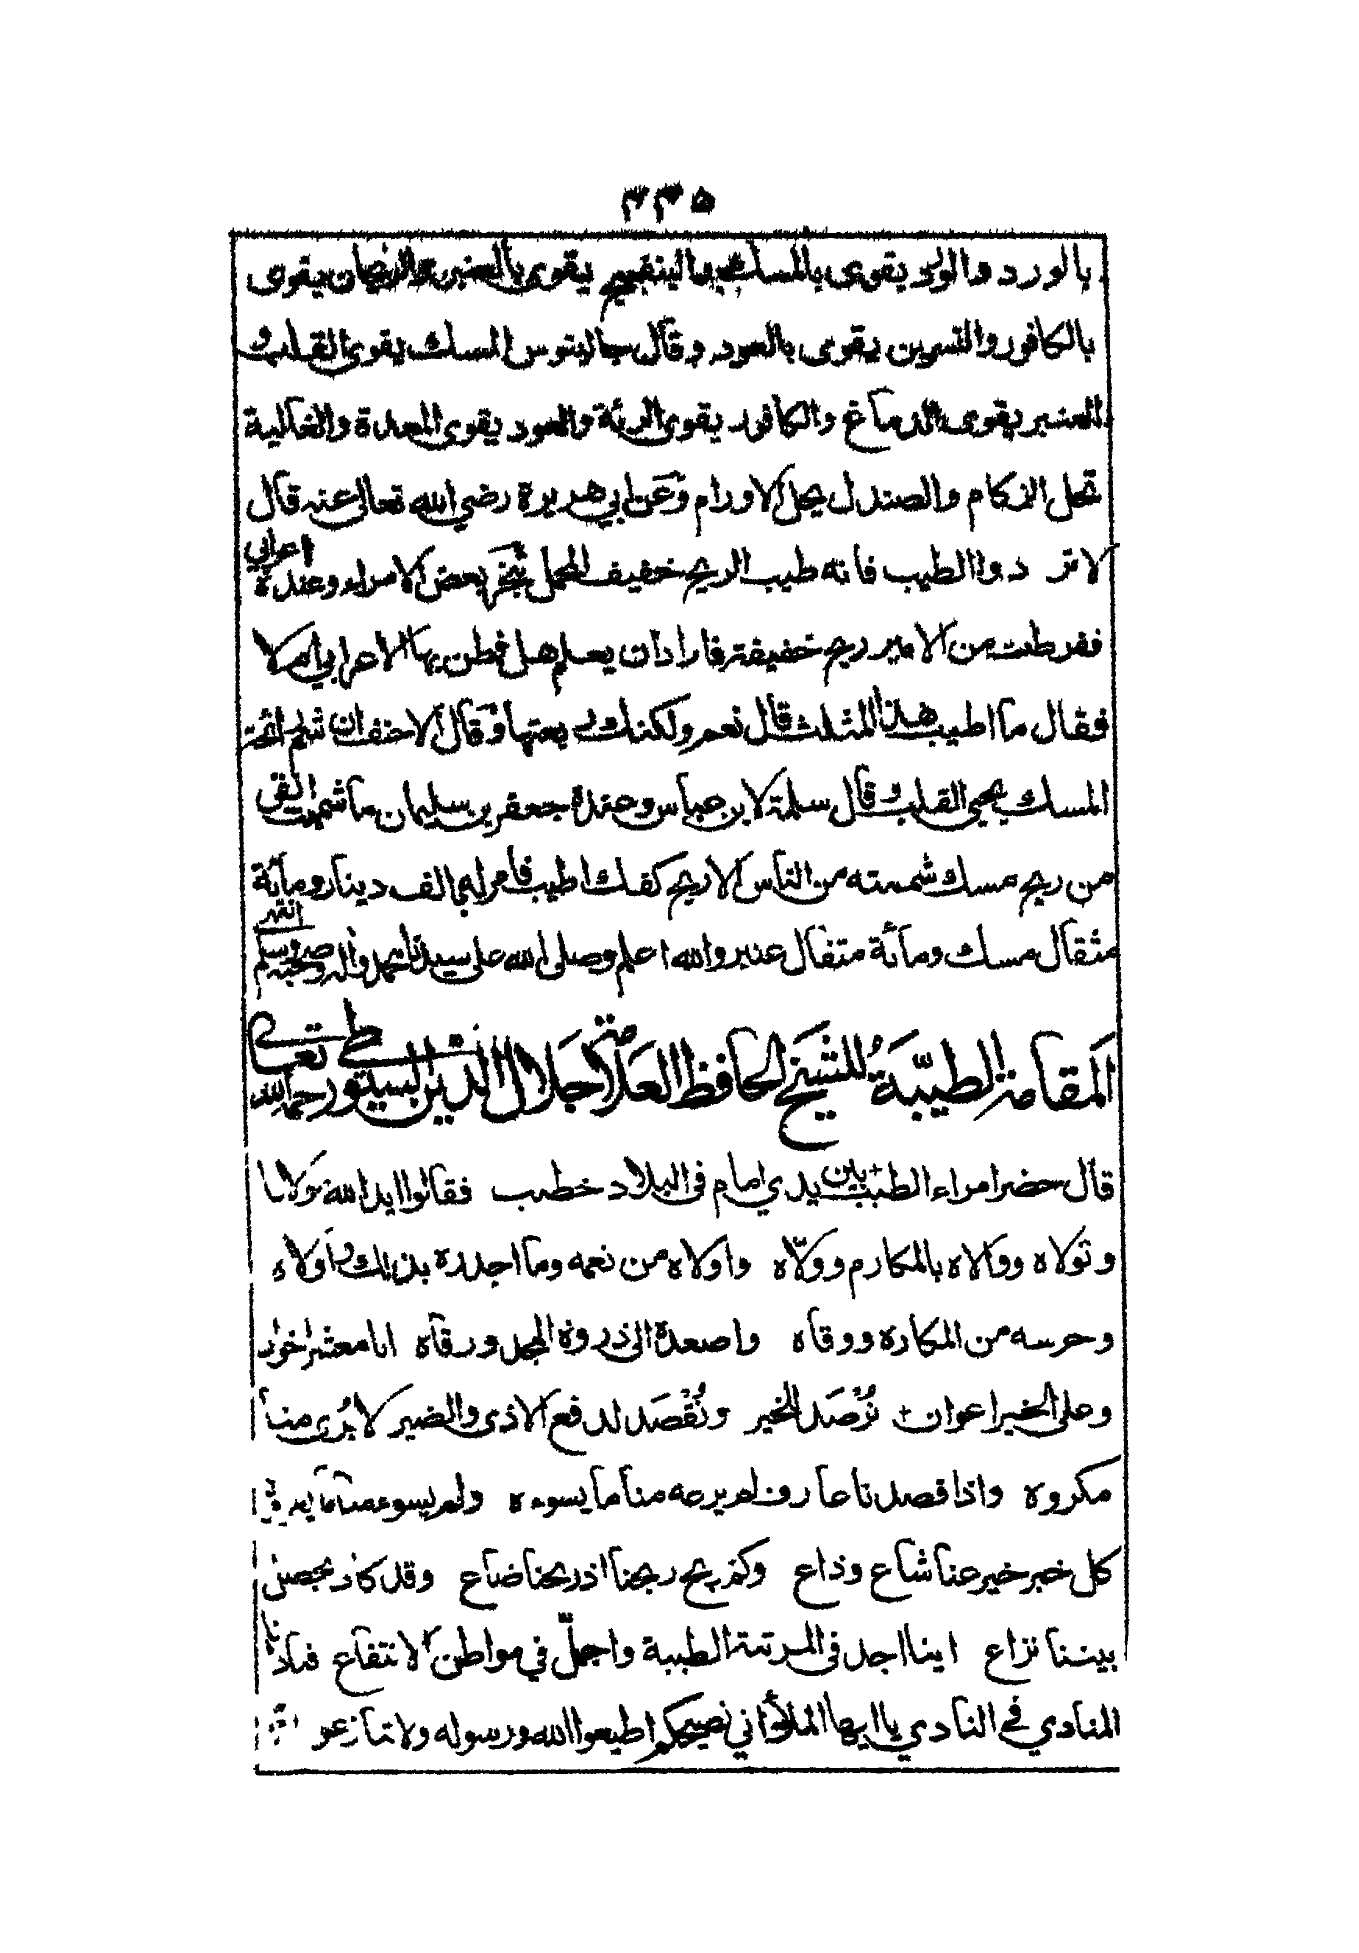 ٣٣٥
بالورد والورد يقوى بالمسك والبنفسج يقوى بالعنبر والريحان يقوى
بالكافور والنسرين يقوى بالعود وقال جالينوس المسك يقوى القلب و
العنبر يقوى الدماغ والكافور يقوى الرئة والعود يقوى المعدة والغالية
تحل الزكام والصندل يحل الاورام وعن ابي هريرة رضي الله تعالى عنه قال
لا تردوا الطيب فانه طيب الريح خفيف المحمل تبخر بعض الامراء وعنده اعرابي
ففرطت من الامير ريح خفيفة فاراد ان يعلم هل فطن بها الاعرابي ام لا
فقال ما اطيب هذا المثلث قال نعم ولكنك ربعتها وقال الاحنف ان شم رائحة
المسك يحيي القلب وقال سلمة لابن عباس وعنده جعفر بن سليمان ما شممت القى
من ريح مسك شممته من الناس الا ريح كفك اطيب فامر له بالف دينار ومائة
مثقال مسك ومائة مثقال عنبر والله اعلم وصلى الله على سيدنا محمد واله وصحبه وسلم انتهى
المقامة الطيبة للشيخ الحافظ العلامة جلال الدين السيوطي رحمه الله تعالى
قال حضر امراء الطيب بين يدي امام في البلاد خطيب فقالوا ايد الله مولانا
وتولاه ووالاه بالمكارم وولاه واولاه من نعمه وما اجدره بذلك واولاه
وحرسه من المكاره ووقاه واصعده الى ذروة المجد ورقاه انا معشر اخوان
وعلى الخير اعوان نرصد للخير ونقصد لدفع الاذى والضير لا يرى منا
مكروه واذا قصدنا عارف لم يرحه منا ما يسوءه ولم يسوء منا ما يعرفه
كل خبر خير عنا شاع وذاع وكم ريح ربحنا اذ ريحنا ضاع وقد كاد يحصل
بيننا نزاع اينا اجل في المرتبة الطيبة واجمل في مواطن الانتفاع فنادانا
المنادي في النادي يا ايها الملأ اني نصيحكم اطيعوا الله ورسوله ولا تنازعوا